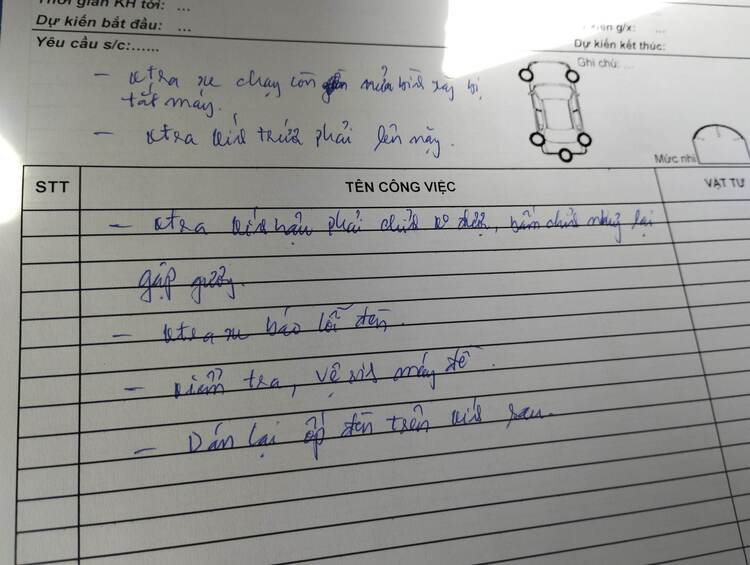 Thời gian KH tới: ...
Dự kiến bắt đầu: ...
Yêu cầu s/c:......
g/x: ...
Dự kiến kết thúc:
Ghi chú: ...
- ktra xe chạy còn nửa bình xay bị
tắt máy.
- ktra kính trước phải lên nặng.
Mức nhi
STT
TÊN CÔNG VIỆC
VẬT TƯ
- ktra kính hậu phải chỉnh ko được, bấm chỉnh nhưng lại
gập gương.
- ktra xe báo lỗi đèn.
- kiểm tra, vệ sinh máy đề.
- Dán lại ốp đèn trên kính sau.